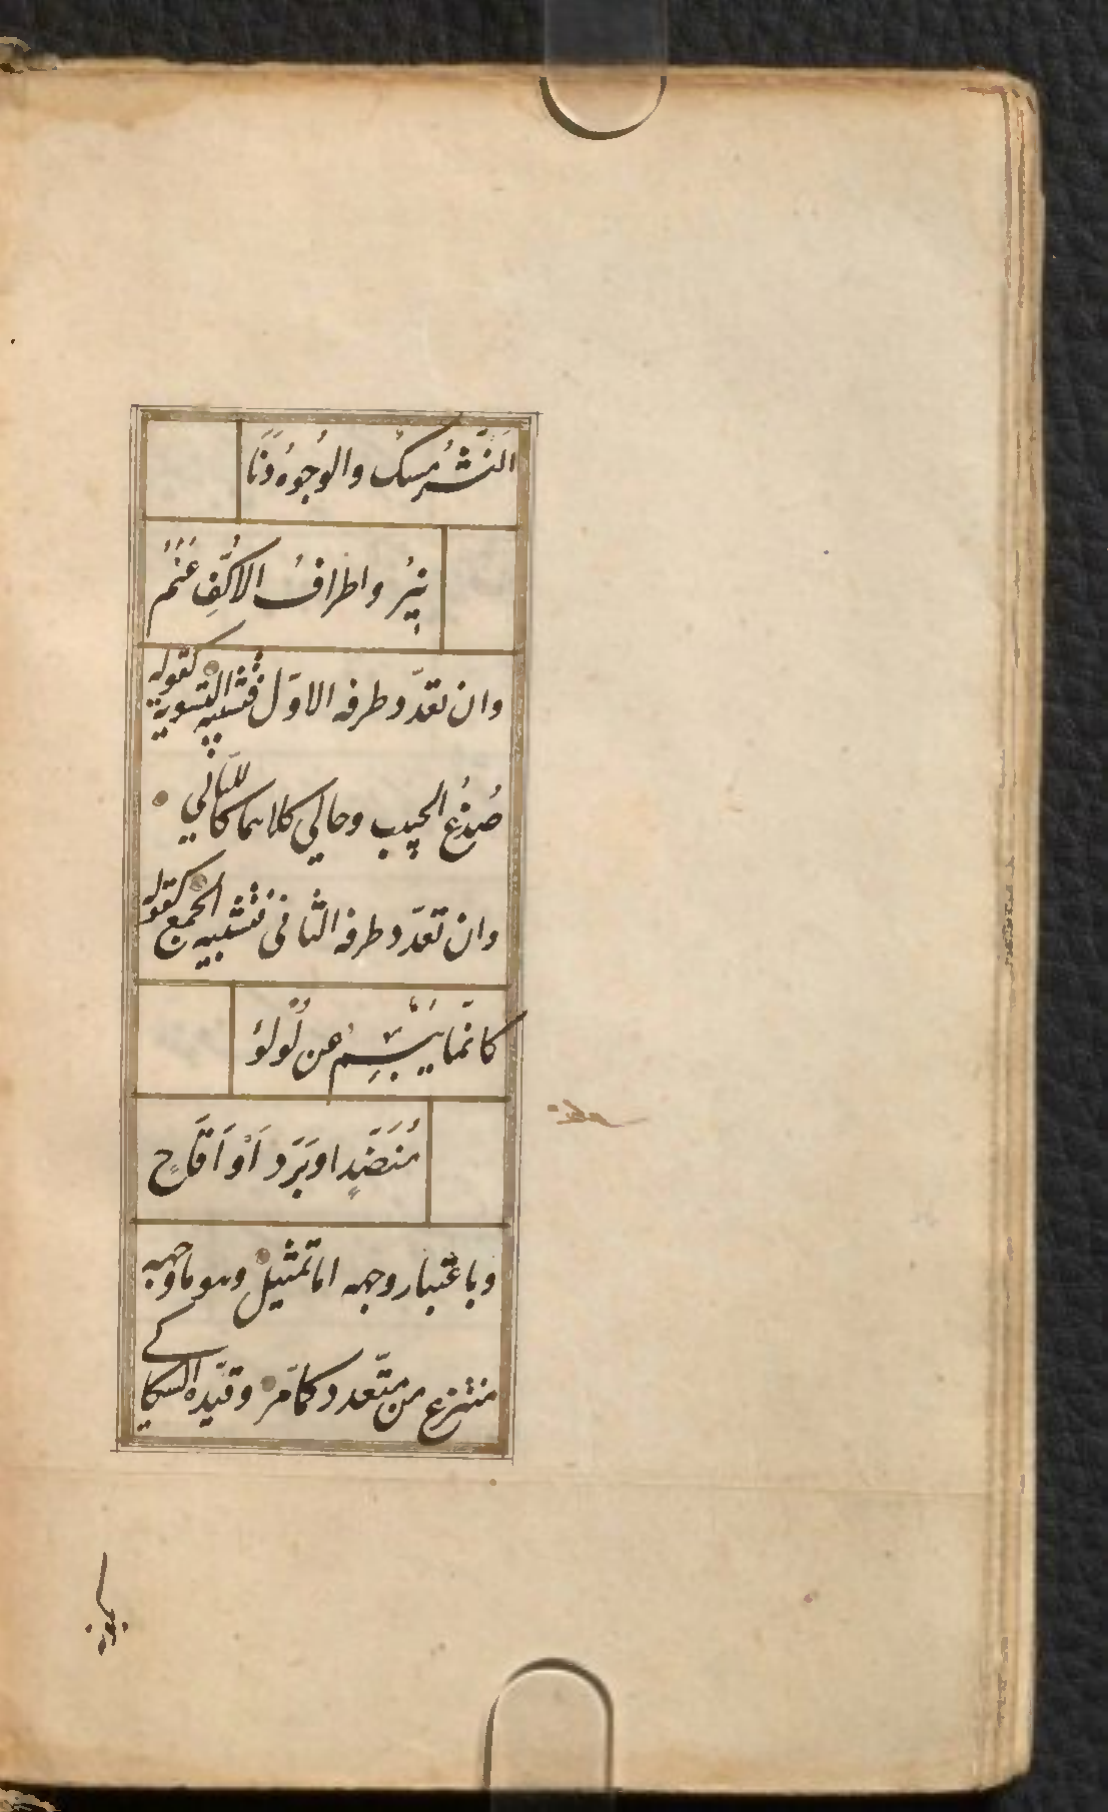 اَلنَّشْرُ مِسكٌ والوُجوُهُ دَنَا
نِيرُ واطرافُ الاكُفِّ عَنَمُ
وان تعدّد طرفه الاوّل فتشبيه التسويه كقوله
صُدْغُ الحبيب وحالي كلاهما كالليّالي
وان تعدّد طرفه الثانى فتشبيه الجمع كقوله
كانّما يَبْسِمُ عن لُولوُ
مُنَضَّدٍ او بَرَد اَوْ اَقَاحٍ
وباعتبار وجهه اما تمثيل وهو ما وجهه
منتزع من متعدد كما مّر وقيّده السكاكے
بكونه